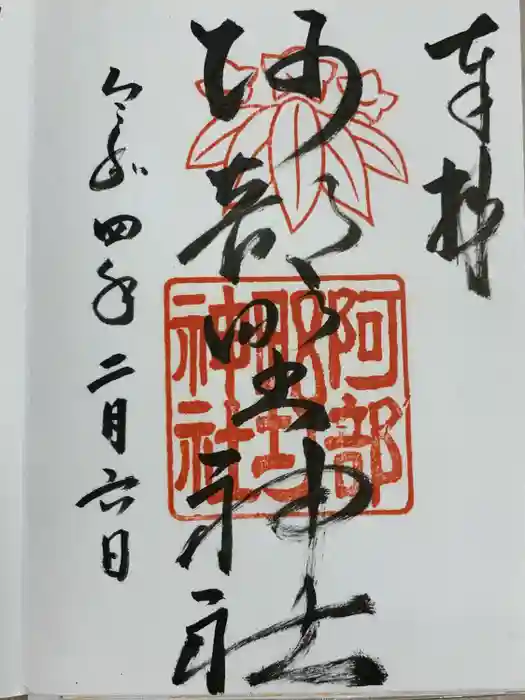 奉拝
阿部野神社
阿部
野
神社
令和四年二月六日